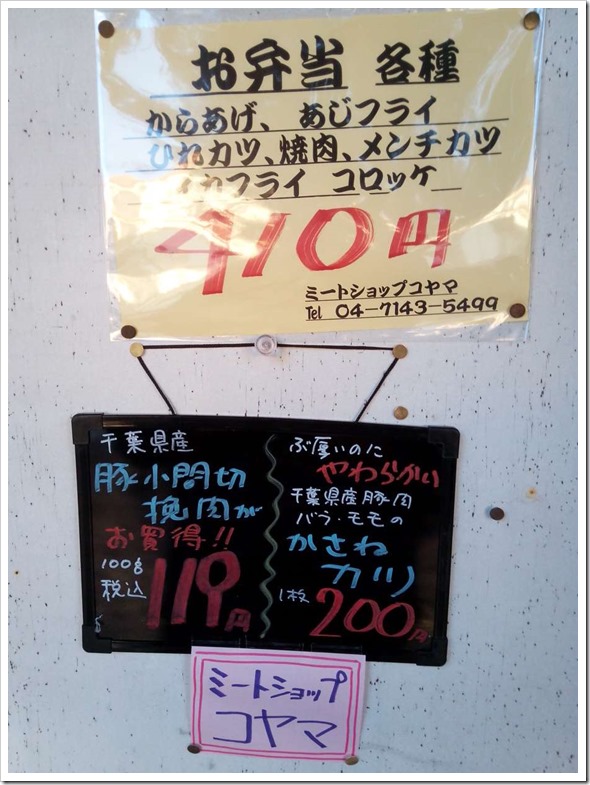 お弁当 各種
からあげ、あじフライ
ひれカツ、焼肉、メンチカツ
イカフライ コロッケ
410円
ミートショップコヤマ
Tel 04-7143-5499
千葉県産
豚小間切
挽肉が
お買得!!
100g
税込
119円
ぶ厚いのに
やわらかい
千葉県産豚肉
バラ・モモの
かさね
カツ
1枚 200円
ミートショップ
コヤマ